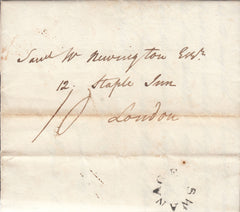 Saml W Newington Esqr
12. Staple Inn
London
10
SWAN